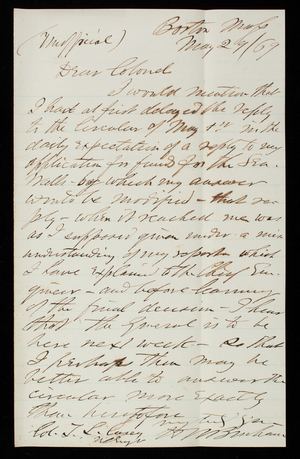 (Unofficial)
Boston Mass
May 29/69
Dear Colonel
I would mention that
I had at first delayed the reply
to the Circular of May 1st in the
daily expectation of a reply to my
application for funds for the Sea
Walls - by which my answer
would be modified - that re-
ply - when it reached me was
as I supposed given under a mis
understanding of my report which
I have explained to the Chief En-
gineer - and before learning
of the final decision - I hear
that the General is to be
here next week - so that
I perhaps then may be
better able to answer the
circular more exactly
than heretofore
very truly yours
Col. T. L. Casey
H W Benham